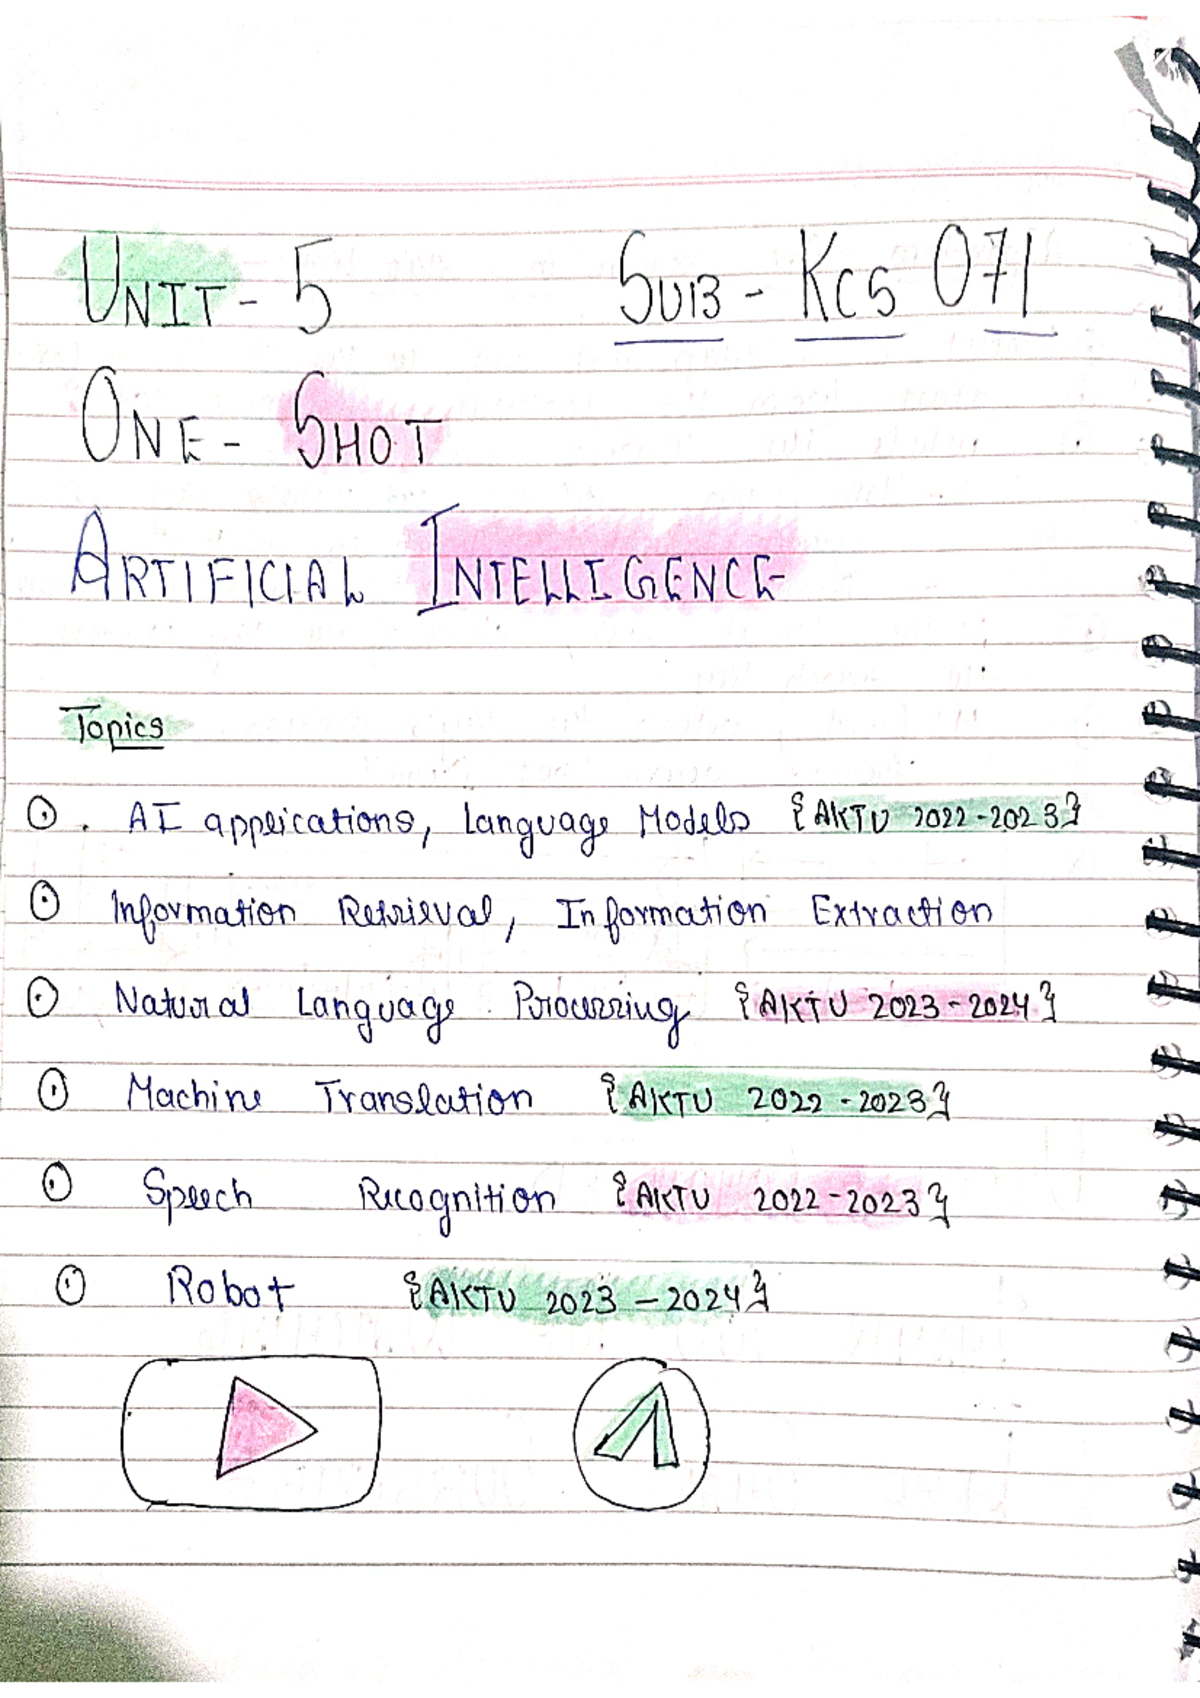 UNIT - 5 SUB - KCS 071
ONE - SHOT
ARTIFICIAL INTELLIGENCE
Topics
. AI applications, Language Models {AKTU 2022-2023}
Information Retrieval, Information Extraction
Natural Language Processing {AKTU 2023-2024}
Machine Translation {AKTU 2022-2023}
Speech Recognition {AKTU 2022-2023}
Robot {AKTU 2023-2024}